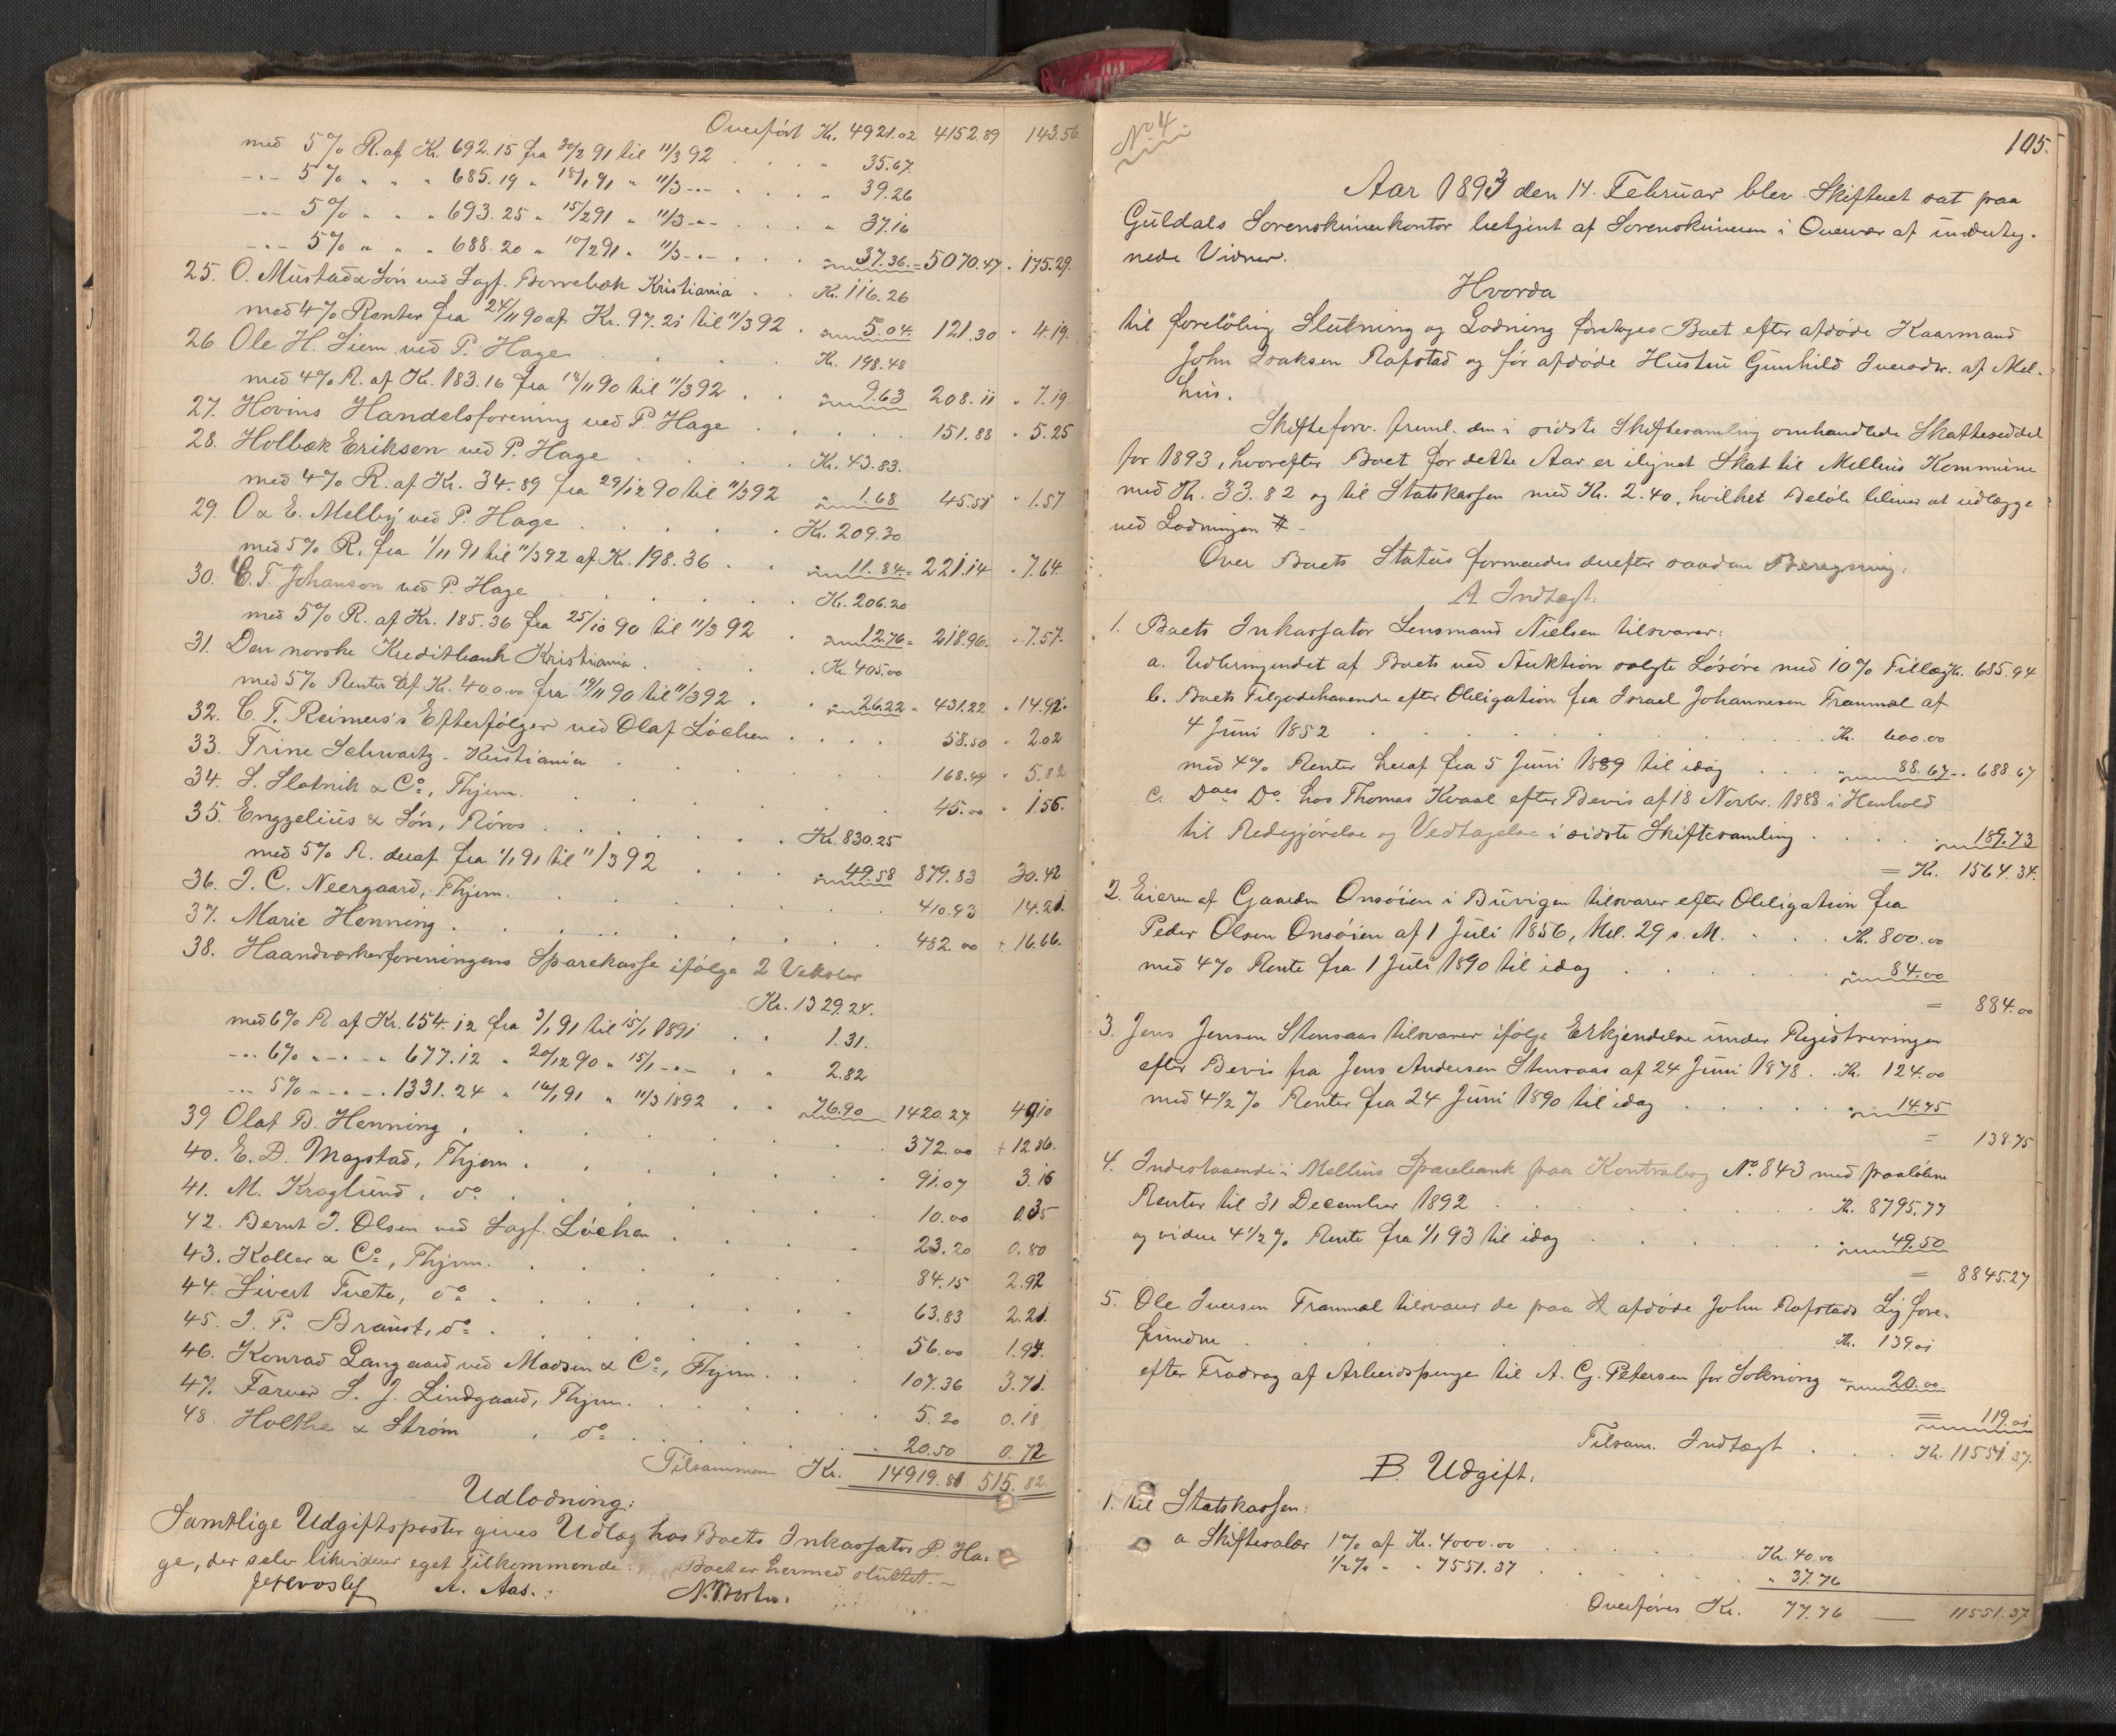 Overført Kr. 4921.02 4152.89 143.56
med 5% R. af Kr. 692.15 fra 20/2 91 til 11/3 92 . . . " 35.67
-"- 5% " " " 685.19 " 18/1 91 " 11/3 -"- . . . " 39.26
-"- 5% " " " 693.25 " 15/2 91 " 11/3 -"- . . . " 37.16
-"- 5% " " " 688.20 " 10/2 91 " 11/3 -"- . . . " 37.36 = 5070.47 " 175.29.
25. O. Mustad & Søn ved Sagf. Borrebæk Kristiania . . Kr. 116.26
med 4% Renter fra 24/11 90 af Kr. 97.21 til 11/3 92 . " 5.04. 121.30 " 4.19.
26 Ole H. Siem ved P. Hage . . . Kr. 198.48
med 4% R. af Kr. 183.16 fra 18/11 90 til 11/3 92 . . " 9.63 208.11 " 7.19
27. Hovins Handelsforening ved P. Hage . . . . . 151.88 " 5.25
28. Holbæk Eriksen ved P. Hage . . . Kr. 43.83.
med 4% R. af Kr. 34.89 fra 29/12 90 til 11/3 92 " 1.68 45.51 " 1.57
29. O & E. Melby ved P. Hage . . . . Kr. 209.30
med 5% R. fra 1/11 91 til 11/3 92 af K. 198.36 . . " 11.84 = 221.14 " 7.64.
30. C. T. Johanson ved P. Hage . . . . Kr. 206.20
med 5% R. af Kr. 185.36 fra 25/10 90 til 11/3 92 . " 12.76 = 218.96. " 7.57.
31. Den norske Kreditbank Kristiania . . . . Kr. 405.00
med 5% Renter af Kr. 400.00 fra 19/11 90 til 11/3 92 . " 26.22 = 431.22 " 14.92.
32. C. T. Reimers's Efterfølger ved Olaf Løchen . . . . 58.50 " 2.02
33. Trine Schwartz - Kristiania . . . . 168.49 " 5.82
34. S. Slatnik & Co., Thjem. . . . . 45.00 " 1.56.
35. Engzelius & Søn, Røros . . . . . Kr. 830.25
med 5% R. deraf fra 1/1 91 til 11/3 92 . . . " 49.58 879.83 30.42
36. J. C. Neergaard, Thjem. . . . . 410.93 14.21.
37. Marie Henning . . . . . 482.00 + 16.66.
38. Haandværkerforeningens Sparekasse ifølge 2 Veksler
Kr. 1329.24.
med 6% R. af Kr. 654.12 fra 3/1 91 til 15/1 1891 . . 1.31.
-"- 6% " -"- " 677.12 " 20/12 90 " 15/1 -"- . . 2.82
-"- 5% " -"- 1331.24 " 16/1 91 " 11/3 1892 . . " 76.90 1420.27 49.10
39 Olaf B. Henning . . . . . 372.00 + 12.86.
40. E. D. Magstad, Thjem . . . . . 91.07 3.16
41. M. Kraglund, do . . . . . 10.00 0.35
42. Bernt J. Olsen ved Sagf. Løchen . . . . 23.20 0.80
43. Koller & Co., Thjem. . . . . 84.15 2.92
44. Sivert Tvete, do . . . . . 63.83 2.21.
45. J. P. Braust, do . . . . . 56.00 1.94.
46. Konrad Langaard ved Madsen & Co., Thjem. . . . 107.36 3.71.
47. Farver S. J. Lindgaard, Thjem. . . . . 5.20 0.18
48. Holthe & Strøm . do . . . . 20.50 0.72
Tilsammen Kr. 14919.81 515.82
Udlodning:
Samtlige Udgiftsposter gives Udlæg hos Boets Inkassator P. Ha-
ge, der selv likviderer eget Tilkommende. Boet er hermed sluttet. -
A. Aas.
No 4
105.
Aar 1893 den 14. Februar blev Skifteret sat paa
Guldals Sorenskriverkontor betjent af Sorenskriveren i Overvær af underteg-
nede Vidner.
Hvorda
til foreløbig Slutning og Lodning foretoges Boet efter afdøde Kaarmand
John Isaksen Rafstad og før afdøde Hustru Gunhild Iversdr. af Mel-
hus.
Skifteforv. freml. den i sidste Skiftesamling omhandlede Skatteseddel
for 1893, hvorefter Boet for dette Aar er ilignet Skat til Melhus Kommune
med Kr. 33.82 og til Statskassen med Kr. 2.40, hvilket Beløb bliver at udlægge
ved Lodningen -
Over Boets Status formeredes derefter saadan Beregning:
A Indtægt.
1. Boets Inkassator Lensmand Nielsen tilsvarer:
a. Udbringendet af Boets ved Auktion solgte Løsøre med 10% Tillæg Kr. 685.94
b. Boets Tilgodehavende efter Obligation fra Israel Johannesen Tranmæl af
4 Juni 1852 . . . . . Kr. 600.00
med 4% Renter heraf fra 5 Juni 1889 til idag . . . " 88.67 " 688.67
c. Does Do hos Thomas Kvaal efter Bevis af 18 Novbr. 1888 i Henhold
til Redegjørelse og Vedtagelse i sidste Skiftesamling . . . . " 189.73
= Kr. 1564.34.
2. Eieren af Gaarden Onsøien i Buvigen tilsvarer efter Obligation fra
Peder Olsen Onsøien af 1 Juli 1856, Mel. 29 s. M. . . . Kr. 800.00
med 4% Rente fra 1 Juli 1890 til idag . . . . " 84.00
= 884.00
3. Jens Jensen Stensaas tilsvarer ifølge Erkjendelse under Registreringen
efter Bevis fra Jens Andersen Stensaas af 24 Juni 1878 . . Kr. 124.00
med 4 1/2 % Renter fra 24 Juni 1890 til idag . . . . " 14.75
= 138.75
4. Indestaaende i Melhus Sparebank paa Kontrabog No. 843 med paaløbne
Renter til 31 December 1892 . . . . . Kr. 8795.77
og videre 4 1/2 % Rente fra 1/1 93 til idag . . . . " 49.50
= 8845.27
5. Ole Iversen Tranmæl tilsvarer de paa afdøde John Rafstads Lig fore-
fundne . . . . . Kr. 139.01
efter Fradrag af Arbeidspenge til A. G. Petersen for Sokning " 20.00
= 119.01
Tilsam. Indtægt . . . Kr. 11551.37.
B. Udgift.
1. til Statskassen:
a. Skiftesalær 1% af Kr. 4000.00 . . . . Kr. 40.00
1/2 % " " 7551.37 . . . . " 37.76
Overføres Kr. 77.76 — 11551.37